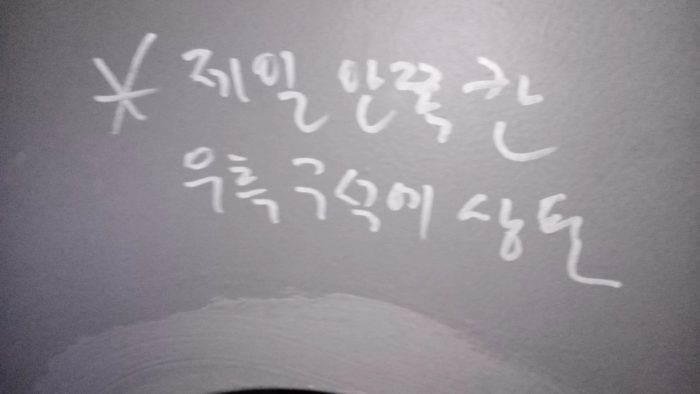 * 제일 안쪽 칸
우측 구석에 상도